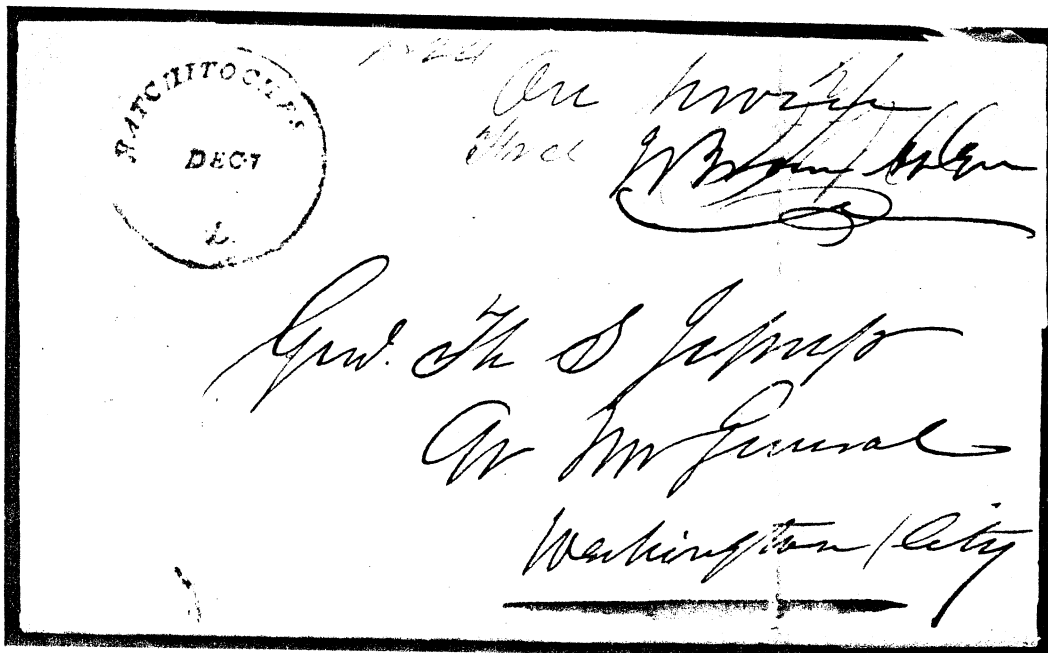 NATCHITOCHES
DEC 7
L.
On
Free
Genl. Th S Jesup
Qr Mr General
Washington City